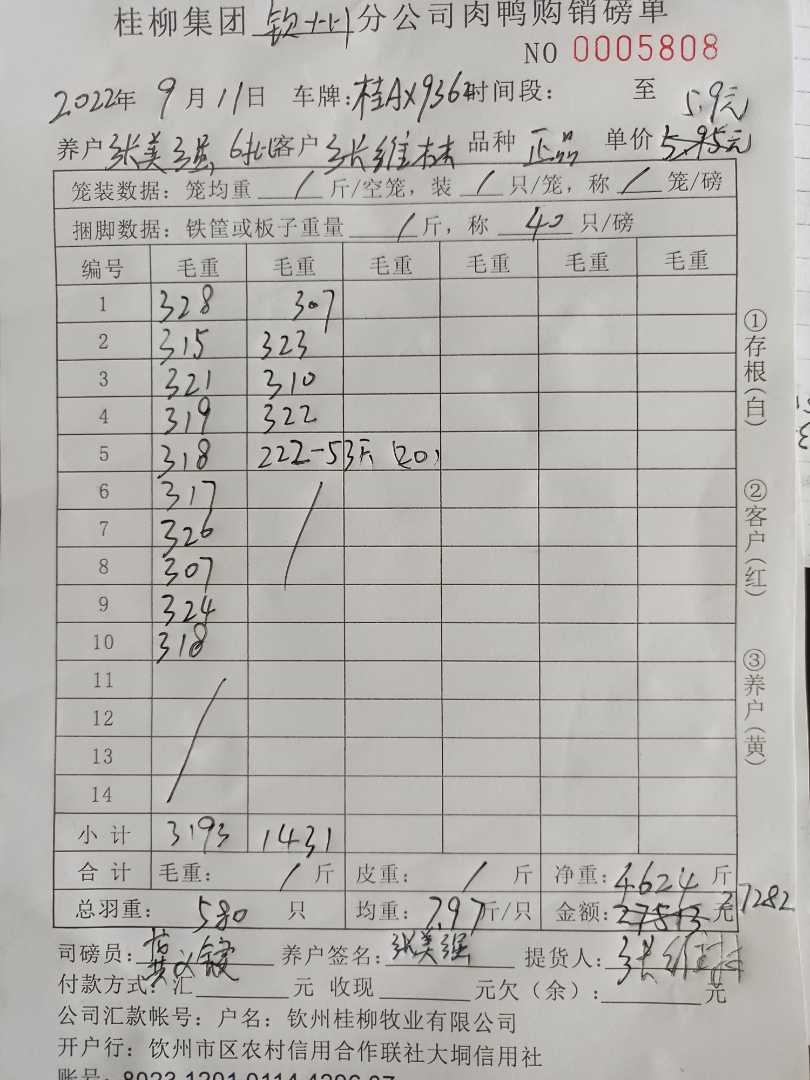 桂柳集团 钦州 分公司肉鸭购销磅单
NO 0005808
2022年 9月 11日 车牌:桂AX9362 时间段: 至
5.9元
养户 张美强 6批 客户 张维林 品种 正品 单价 5.95元
笼装数据: 笼均重 / 斤/空笼, 装 / 只/笼, 称 / 笼/磅
捆脚数据: 铁筐或板子重量 / 斤, 称 40 只/磅
编号 毛重 毛重 毛重 毛重 毛重 毛重
1 328 307
2 315 323
3 321 310
4 319 322
5 318 222-53斤 (20)
6 317 /
7 326
8 307
9 324
10 318
11 /
12
13
14
小计 3193 1431
合计 毛重: / 斤 皮重: / 斤 净重: 4624 斤
总羽重: 580 只 均重: 7.97 斤/只 金额: 27513 元 27282
司磅员: 养户签名: 张美强 提货人: 张维林
付款方式: 汇 元 收现 元欠(余): 元
公司汇款帐号: 户名: 钦州桂柳牧业有限公司
开户行: 钦州市区农村信用合作联社大垌信用社
账号: 8023 1201 0114 4296 07
①存根(白)
②客户(红)
③养户(黄)